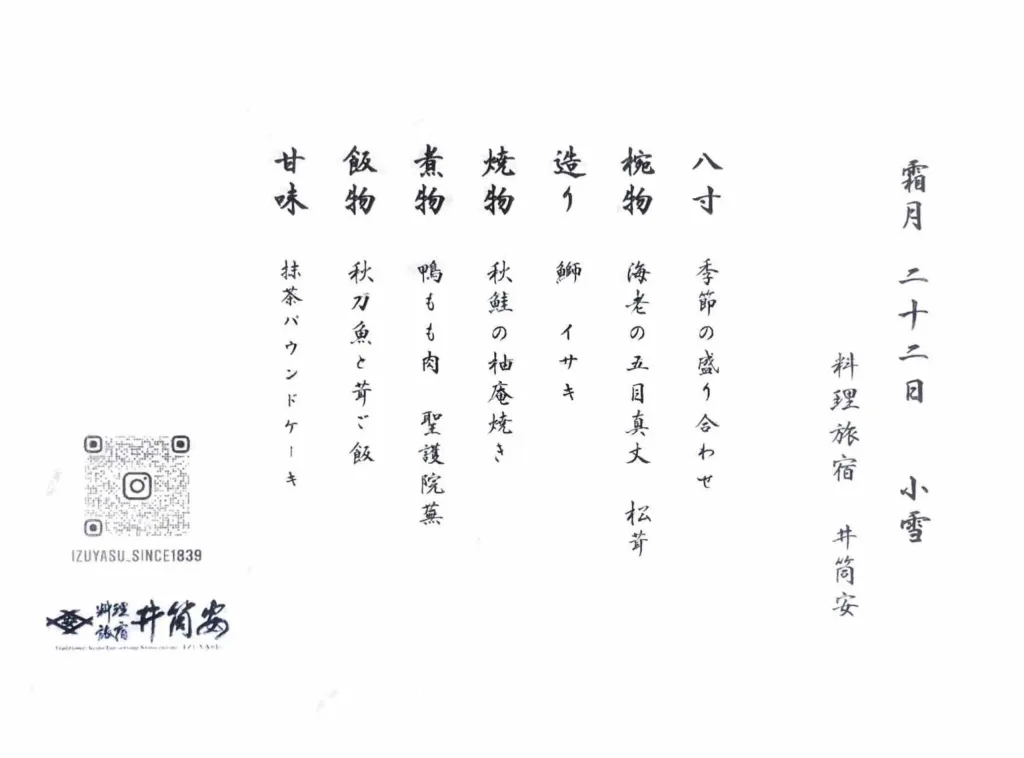 霜月 二十二日 小雪
料理旅宿 井筒安
八寸 季節の盛り合わせ
椀物 海老の五目真丈 松茸
造り 鰤 イサキ
焼物 秋鮭の柚庵焼き
煮物 鴨もも肉 聖護院蕪
飯物 秋刀魚と茸ご飯
甘味 抹茶パウンドケーキ
IZUYASU_SINCE1839
料理
旅宿 井筒安